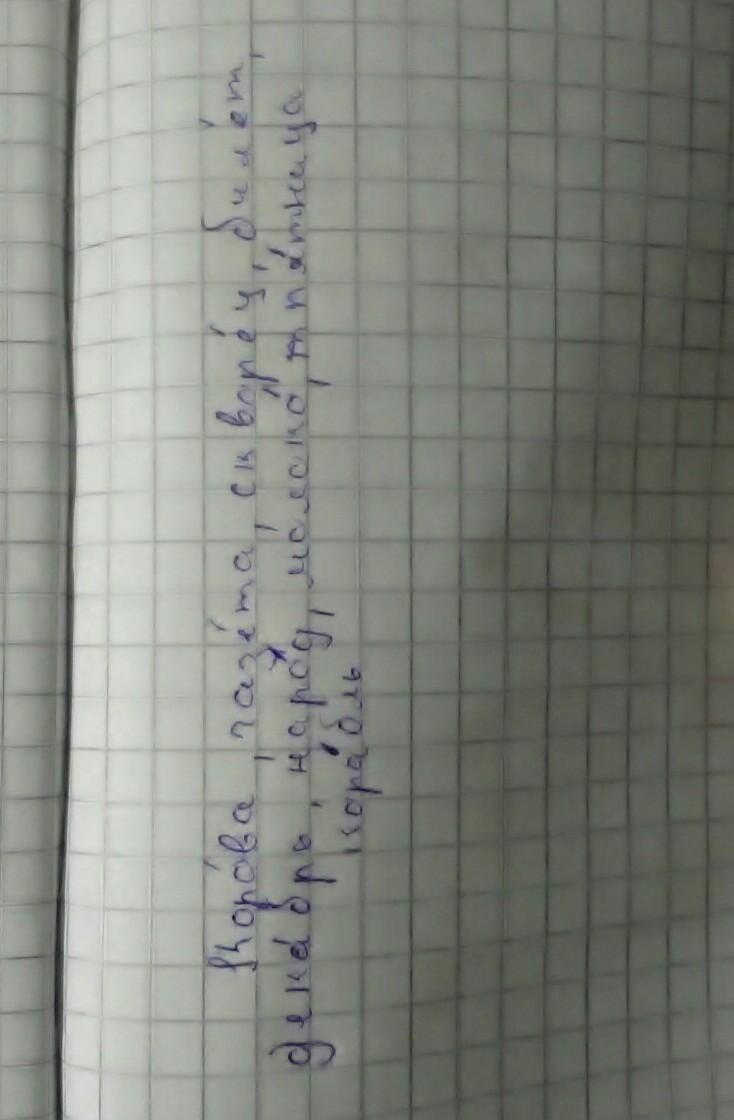 Коро́ва, газе́та, скворе́ц, биле́т,
дека́брь, наро́д, молоко́, пя́тница
кора́бль